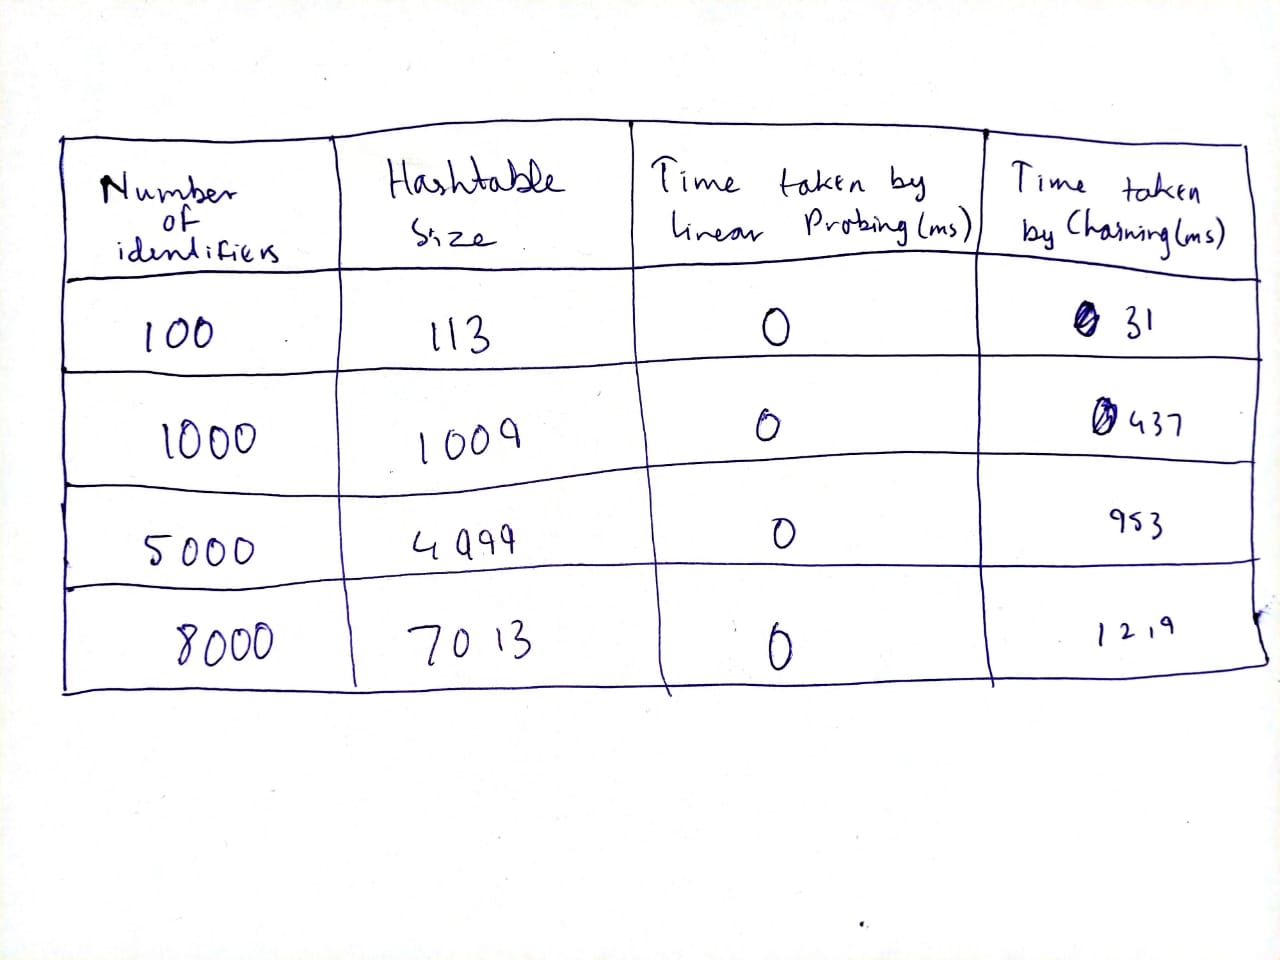 Number
of
identifiers
Hashtable
Size
Time taken by
linear Probing (ms)
Time taken
by Chaining (ms)
100 113 0 31
1000 1009 0 437
5000 4999 0 953
8000 7013 0 1219